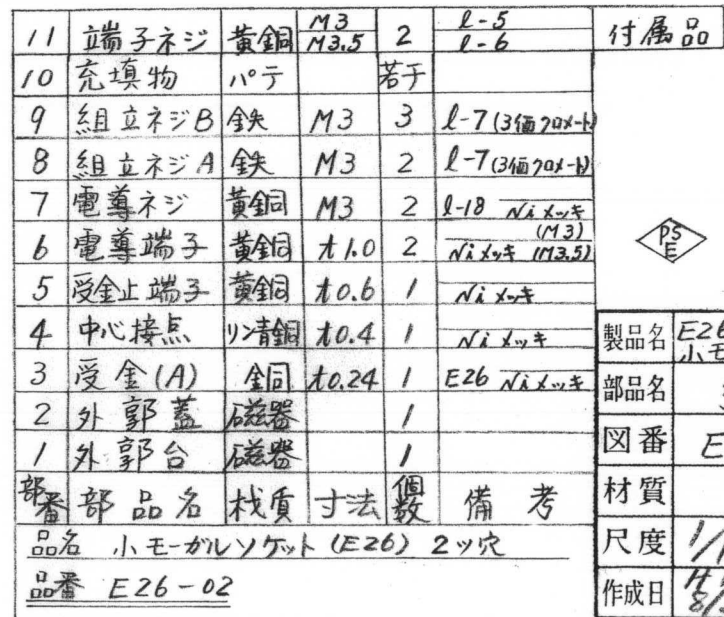 11 端子ネジ 黄銅 M3 M3.5 2 l-5 l-6
10 充填物 パテ 若干
9 組立ネジB 鉄 M3 3 l-7 (3価クロメート)
8 組立ネジA 鉄 M3 2 l-7 (3価クロメート)
7 電導ネジ 黄銅 M3 2 l-18 Niメッキ
6 電導端子 黄銅 t1.0 2 Niメッキ (M3) (M3.5)
5 受金止端子 黄銅 t0.6 1 Niメッキ
4 中心接点 リン青銅 t0.4 1 Niメッキ
3 受金(A) 銅 t0.24 1 E26 Niメッキ
2 外郭蓋 磁器 1
1 外郭台 磁器 1
部番 部品名 材質 寸法 個数 備考
品名 小モーガルソケット (E26) 2ッ穴
品番 E26-02
付属品
PS
E
製品名 E26
小モ
部品名
図番 E
材質
尺度 1/1
作成日